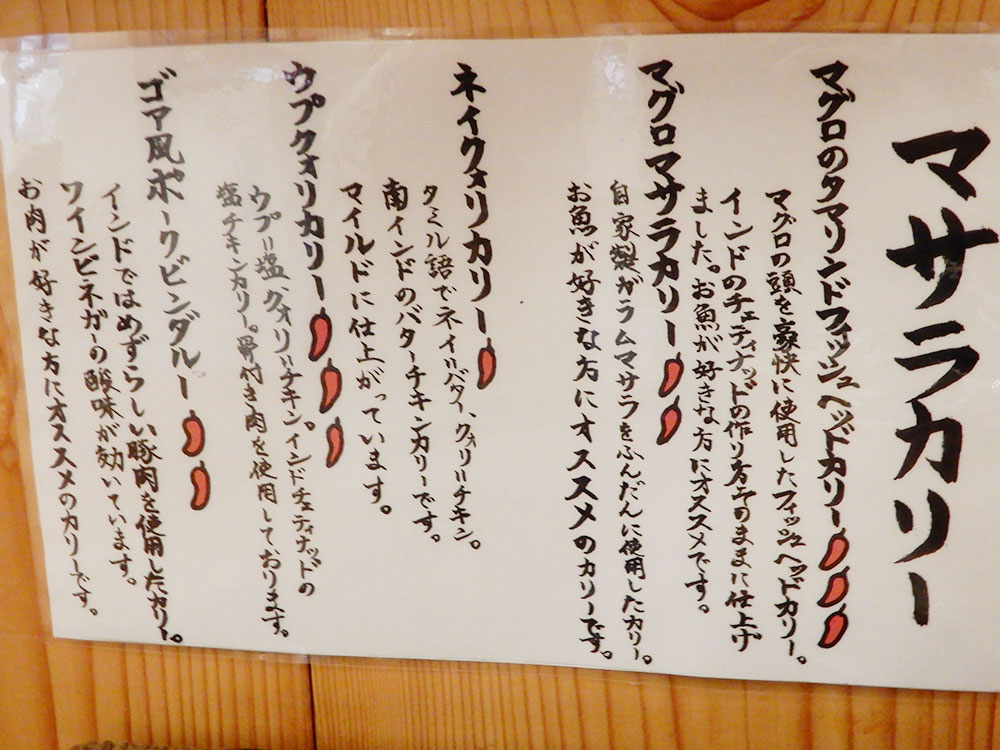 マサラカリー
マグロのタマリンドフィッシュヘッドカリー
マグロの頭を豪快に使用したフィッシュヘッドカリー。
インドのチェティナッドの作り方そのままに仕上げ
ました。お魚が好きな方にオススメです。
マグロマサラカリー
自家製ガラムマサラをふんだんに使用したカリー。
お魚が好きな方にオススメのカリーです。
ネイクォリカリー
タミル語でネイ=バター、クォリ=チキン。
南インドのバターチキンカリーです。
マイルドに仕上がっています。
ウプクォリカリー
ウプ=塩、クォリ=チキン。インドチェティナッドの
塩チキンカリー。骨付き肉を使用しております。
ゴア風ポークビンダルー
インドではめずらしい豚肉を使用したカリー。
ワインビネガーの酸味が効いています。
お肉が好きな方にオススメのカリーです。